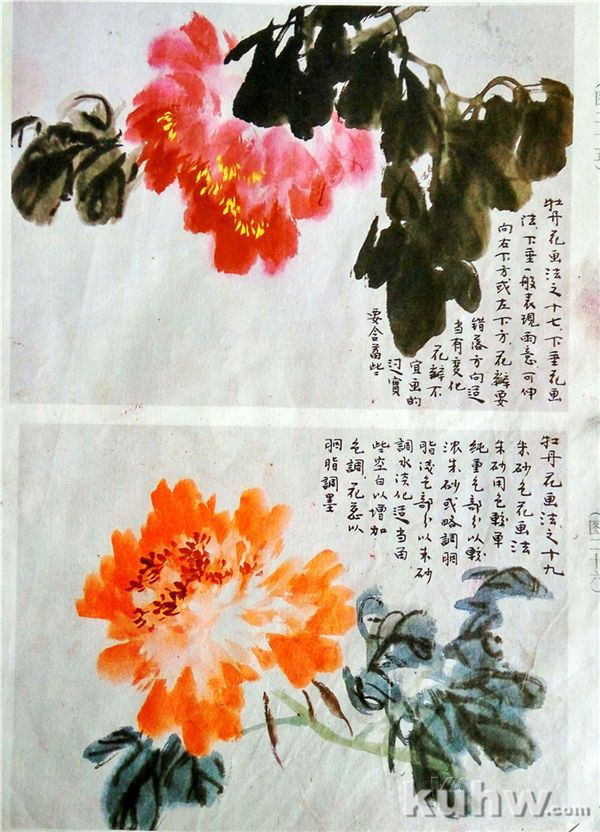 牡丹花画法之十七、下垂花画
法、下垂一般表現雨意可伸
向右下方或左下方、花瓣要
錯落方向适
当有变化
花瓣不
宜画的
过實
要含蓄些
(图二十五)
牡丹花画法之十九
朱砂色花画法
朱砂用色較單
純重色部分以較
浓朱砂或略調胭
脂浅色部分以朱砂
調水淡化适当留
些空白以增加
色調、花蕊以
胭脂調墨
(图二十六)
kuhw.com